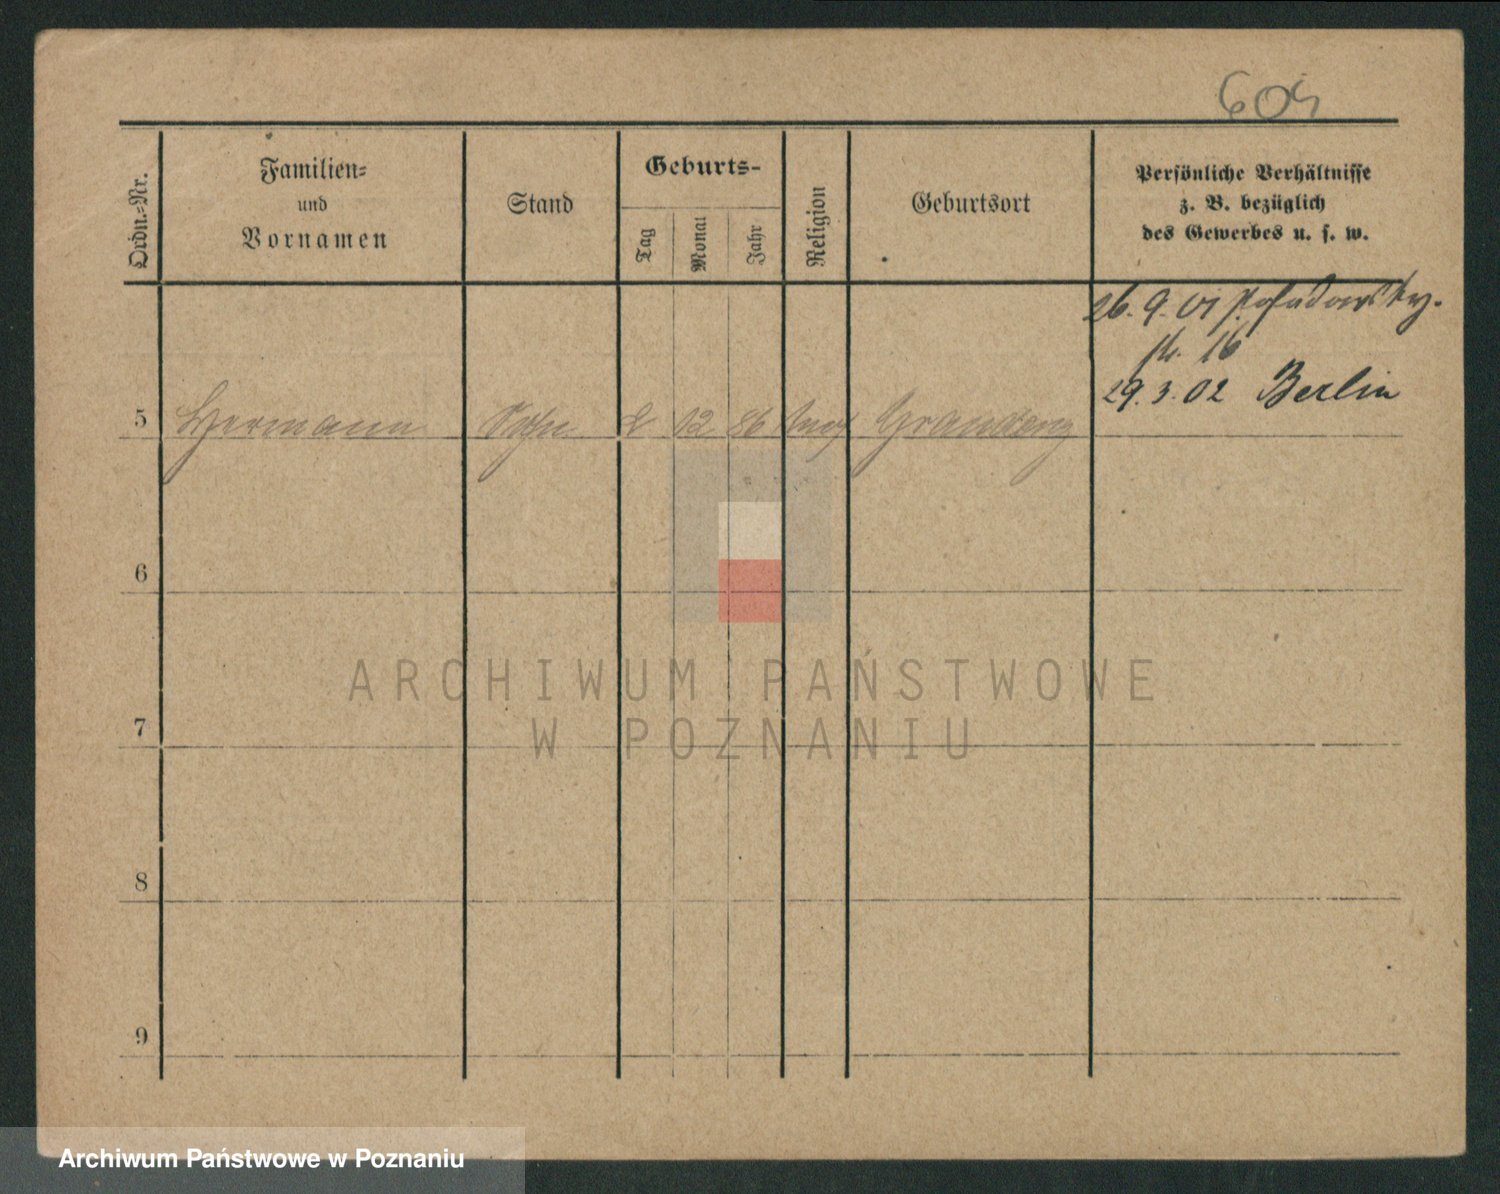 605
Ordn.-Nr.
Familien-
und
Vornamen
Stand
Geburts-
Tag
Monat
Jahr
Religion
Geburtsort
Persönliche Verhältnisse
z. B. bezüglich
des Gewerbes u. s. w.
26. 9. 01 Posadowsky-
str. 16
29. 3. 02 Berlin
5 Hermann Sohn 2 12 86 Graudenz
6
7
8
9
ARCHIWUM PAŃSTWOWE
W POZNANIU
Archiwum Państwowe w Poznaniu